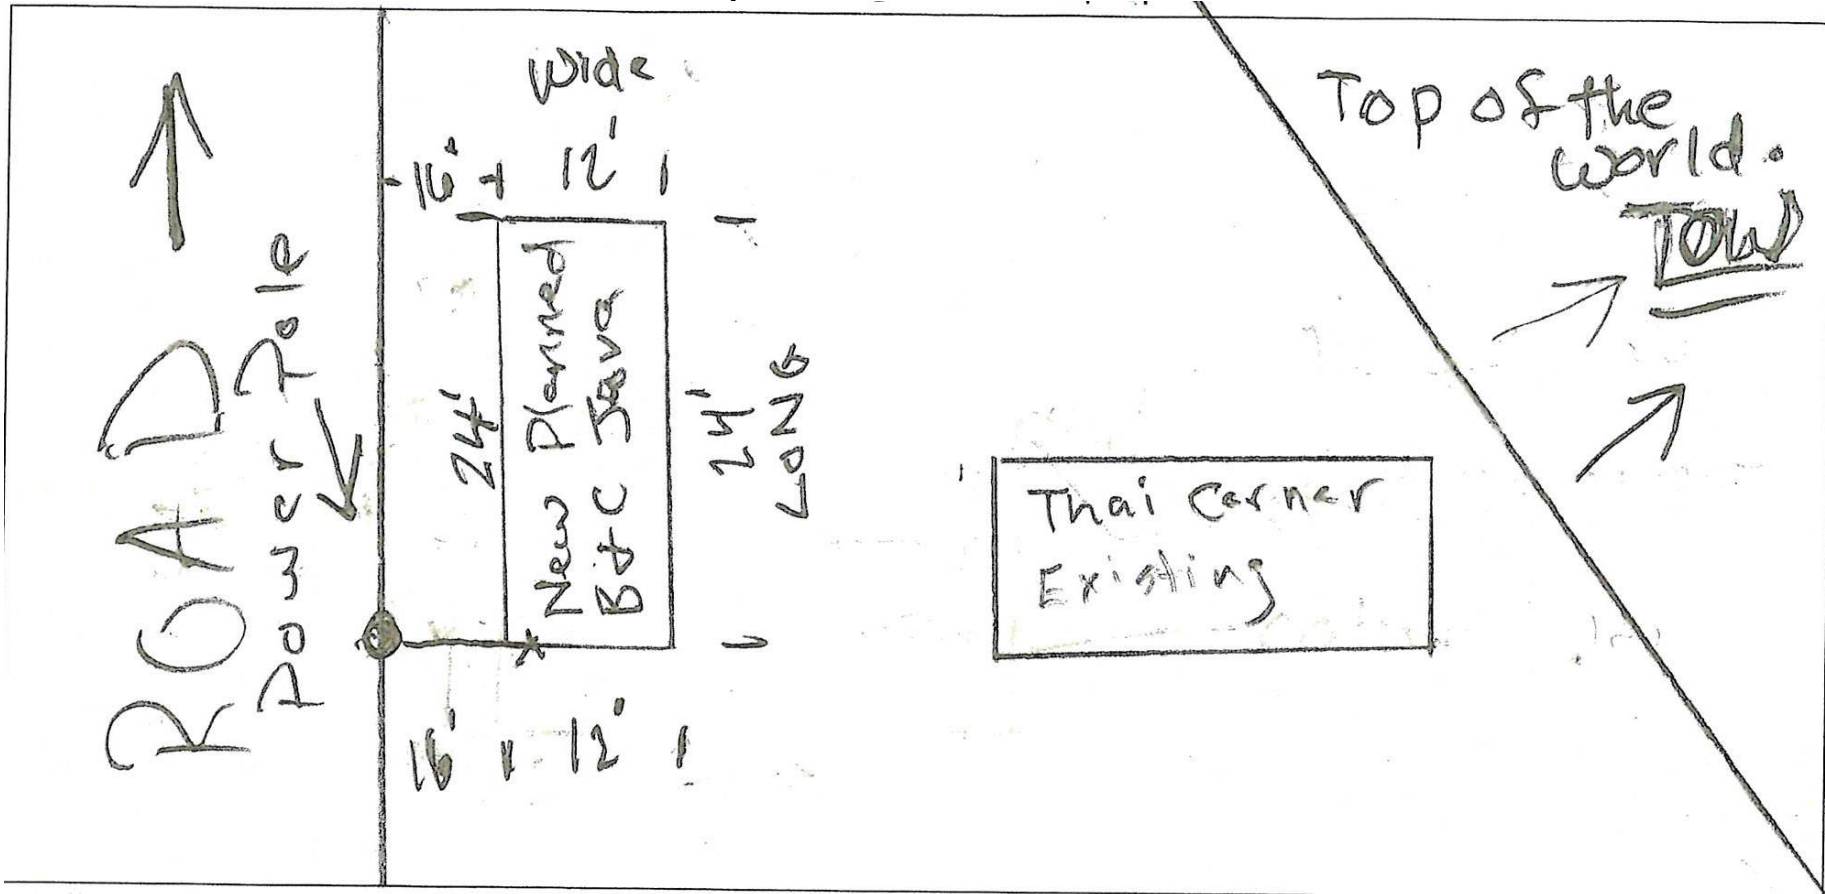 ROAD
Power Pole
16'
12'
Wide
24'
New Planned
B+C Java
24'
LONG
16'
12'
Thai Corner
Existing
Top of the
world.
TOW